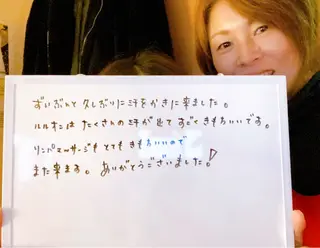 ずいぶんと久しぶりに汗をかきに来ました。
ルルオンはたくさんの汗が出てすごくきもちいいです。
リンパマッサージもとてもきもちいいので
また来ます。ありがとうございました!